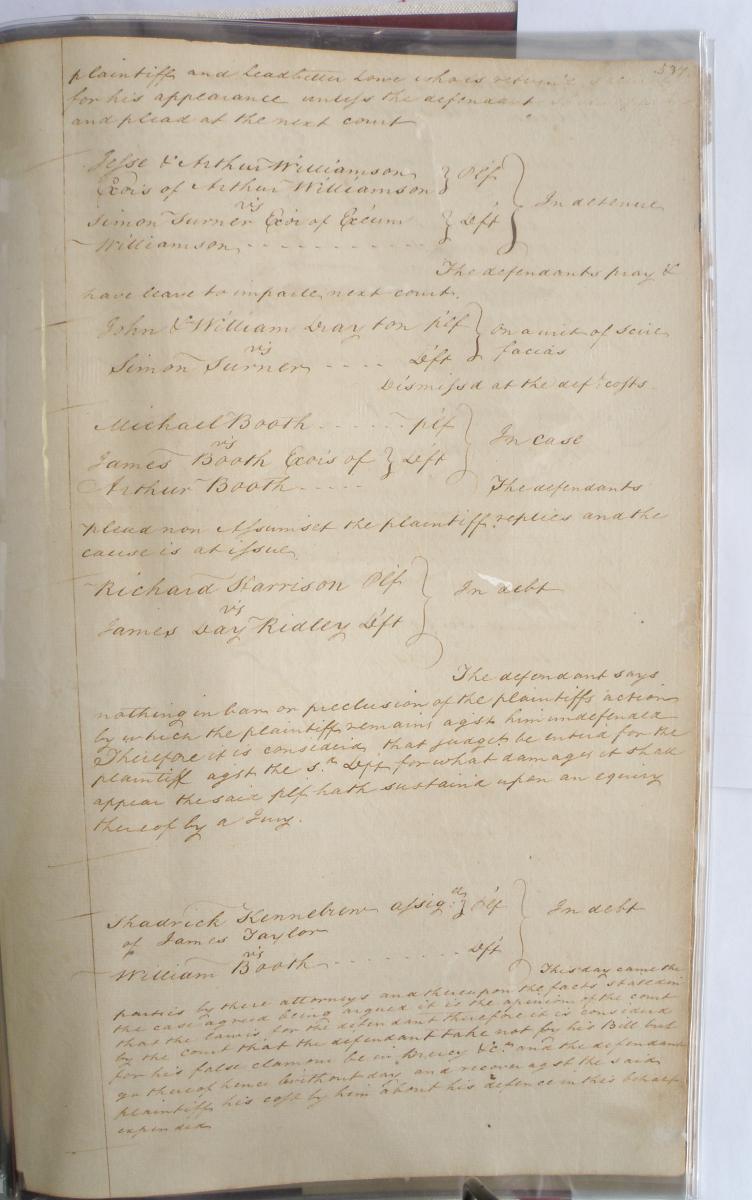 537
plaintiff and Leadbetter Lowe who is return'd
for his appearance unless the defendant
and plead at the next court
Jesse & Arthur Williamson } Plf
Exors of Arthur Williamson
vs } In detenue
Simon Turner Exor of Exum } Dft
Williamson
The defendants pray &
have leave to imparle next court.
John & William Drayton plf } on a writ of Scire
vs facias
Simon Turner Dft
Dismissd at the deft costs.
Michael Booth plf
vs } In case
James Booth Exors of } Dft
Arthur Booth
The defendants
plead non Assumset the plaintiff replies and the
cause is at issue
Richard Harrison Plf
vs } In debt
James Day Ridley Dft
The defendant says
nothing in bar or preclusion of the plaintiffs action
by which the plaintiff remains agst him undefended
Therefore it is considerd that judgt be enterd for the
plaintiff agst the sd Dft for what damages it shall
appear the said plf hath sustaind upon an equiry
thereof by a Jury.
Shadrick Kennebrew assigd } Plf
of James Taylor } In debt
vs
William Booth Dft
This day came the
parties by there attorneys and thereupon the facts stated in
the case agreed being argued it is the apinion of the court
that the law is for the defendant therefore it is considerd
by the court that the defendant take not for his Bill but
for his false clamour be in Mercy &c. and the defendant
go thereof hence without day and recover agst the said
plaintiff his cost by him about his defence in this behalf
expended